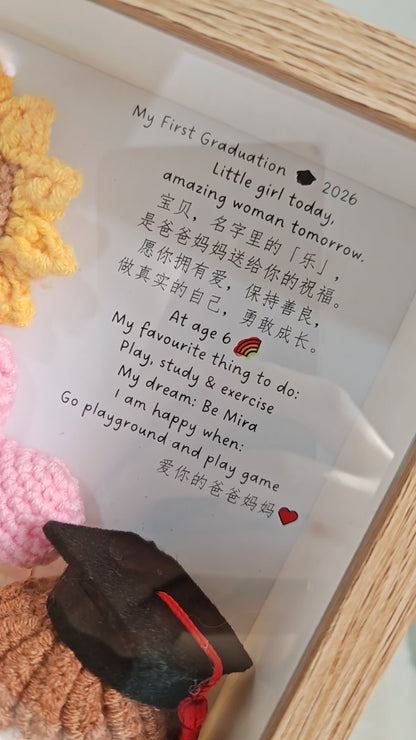 My First Graduation 🎓 2026
Little girl today,
amazing woman tomorrow.
宝贝，名字里的「乐」，
是爸爸妈妈送给你的祝福。
愿你拥有爱，保持善良，
做真实的自己，勇敢成长。
At age 6 🌈
My favourite thing to do:
Play, study & exercise
My dream: Be Mira
I am happy when:
Go playground and play game
爱你的爸爸妈妈❤️